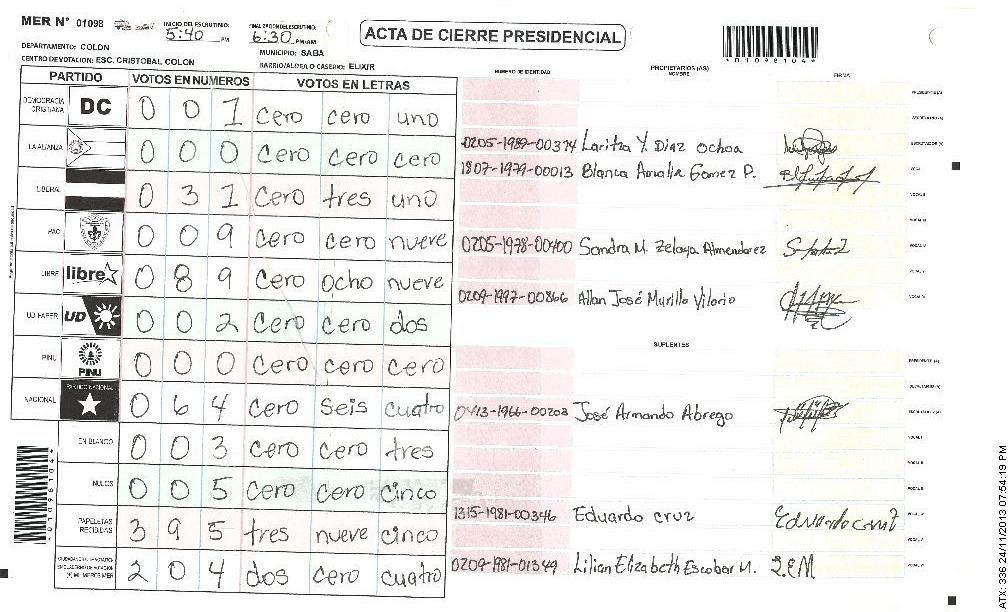 MER N° 01098
INICIO DEL ESCRUTINIO: 5:40 PM
FINALIZACION DEL ESCRUTINIO: 6:30 PM/AM
ACTA DE CIERRE PRESIDENCIAL
*01098104*
DEPARTAMENTO: COLON
MUNICIPIO: SABA
CENTRO DE VOTACION: ESC. CRISTOBAL COLON
BARRIO/ALDEA O CASERIO: ELIXIR
PARTIDO VOTOS EN NUMEROS VOTOS EN LETRAS
NUMERO DE IDENTIDAD PROPIETARIOS (AS) NOMBRE FIRMA
DEMOCRACIA CRISTIANA DC 0 0 1 cero cero uno
LA ALIANZA 0 0 0 cero cero cero
LIBERAL 0 3 1 cero tres uno
PAC 0 0 9 cero cero nueve
LIBRE libre 0 8 9 cero ocho nueve
UD FAPER UD 0 0 2 cero cero dos
PINU PINU 0 0 0 cero cero cero
NACIONAL PARTIDO NACIONAL 0 6 4 cero seis cuatro
EN BLANCO 0 0 3 cero cero tres
NULOS 0 0 5 cero cero cinco
PAPELETAS RECIBIDAS 3 9 5 tres nueve cinco
2 0 4 dos cero cuatro
0205-1989-00374 Laritza Y. Diaz Ochoa
1807-1979-00013 Blanca Amalia Gomez P.
0205-1978-00400 Sandra M. Zelaya Almendarez
0209-1997-00866 Allan José Murillo Vilorio
SUPLENTES
0413-1966-00203 José Armando Abrego
1315-1981-00346 Eduardo cruz Eduardo cruz
0209-1981-01349 Lilian Elizabeth Escobar M. L.E.M
*01098104*
ATX: 336 24/11/2013 07:54:19 PM